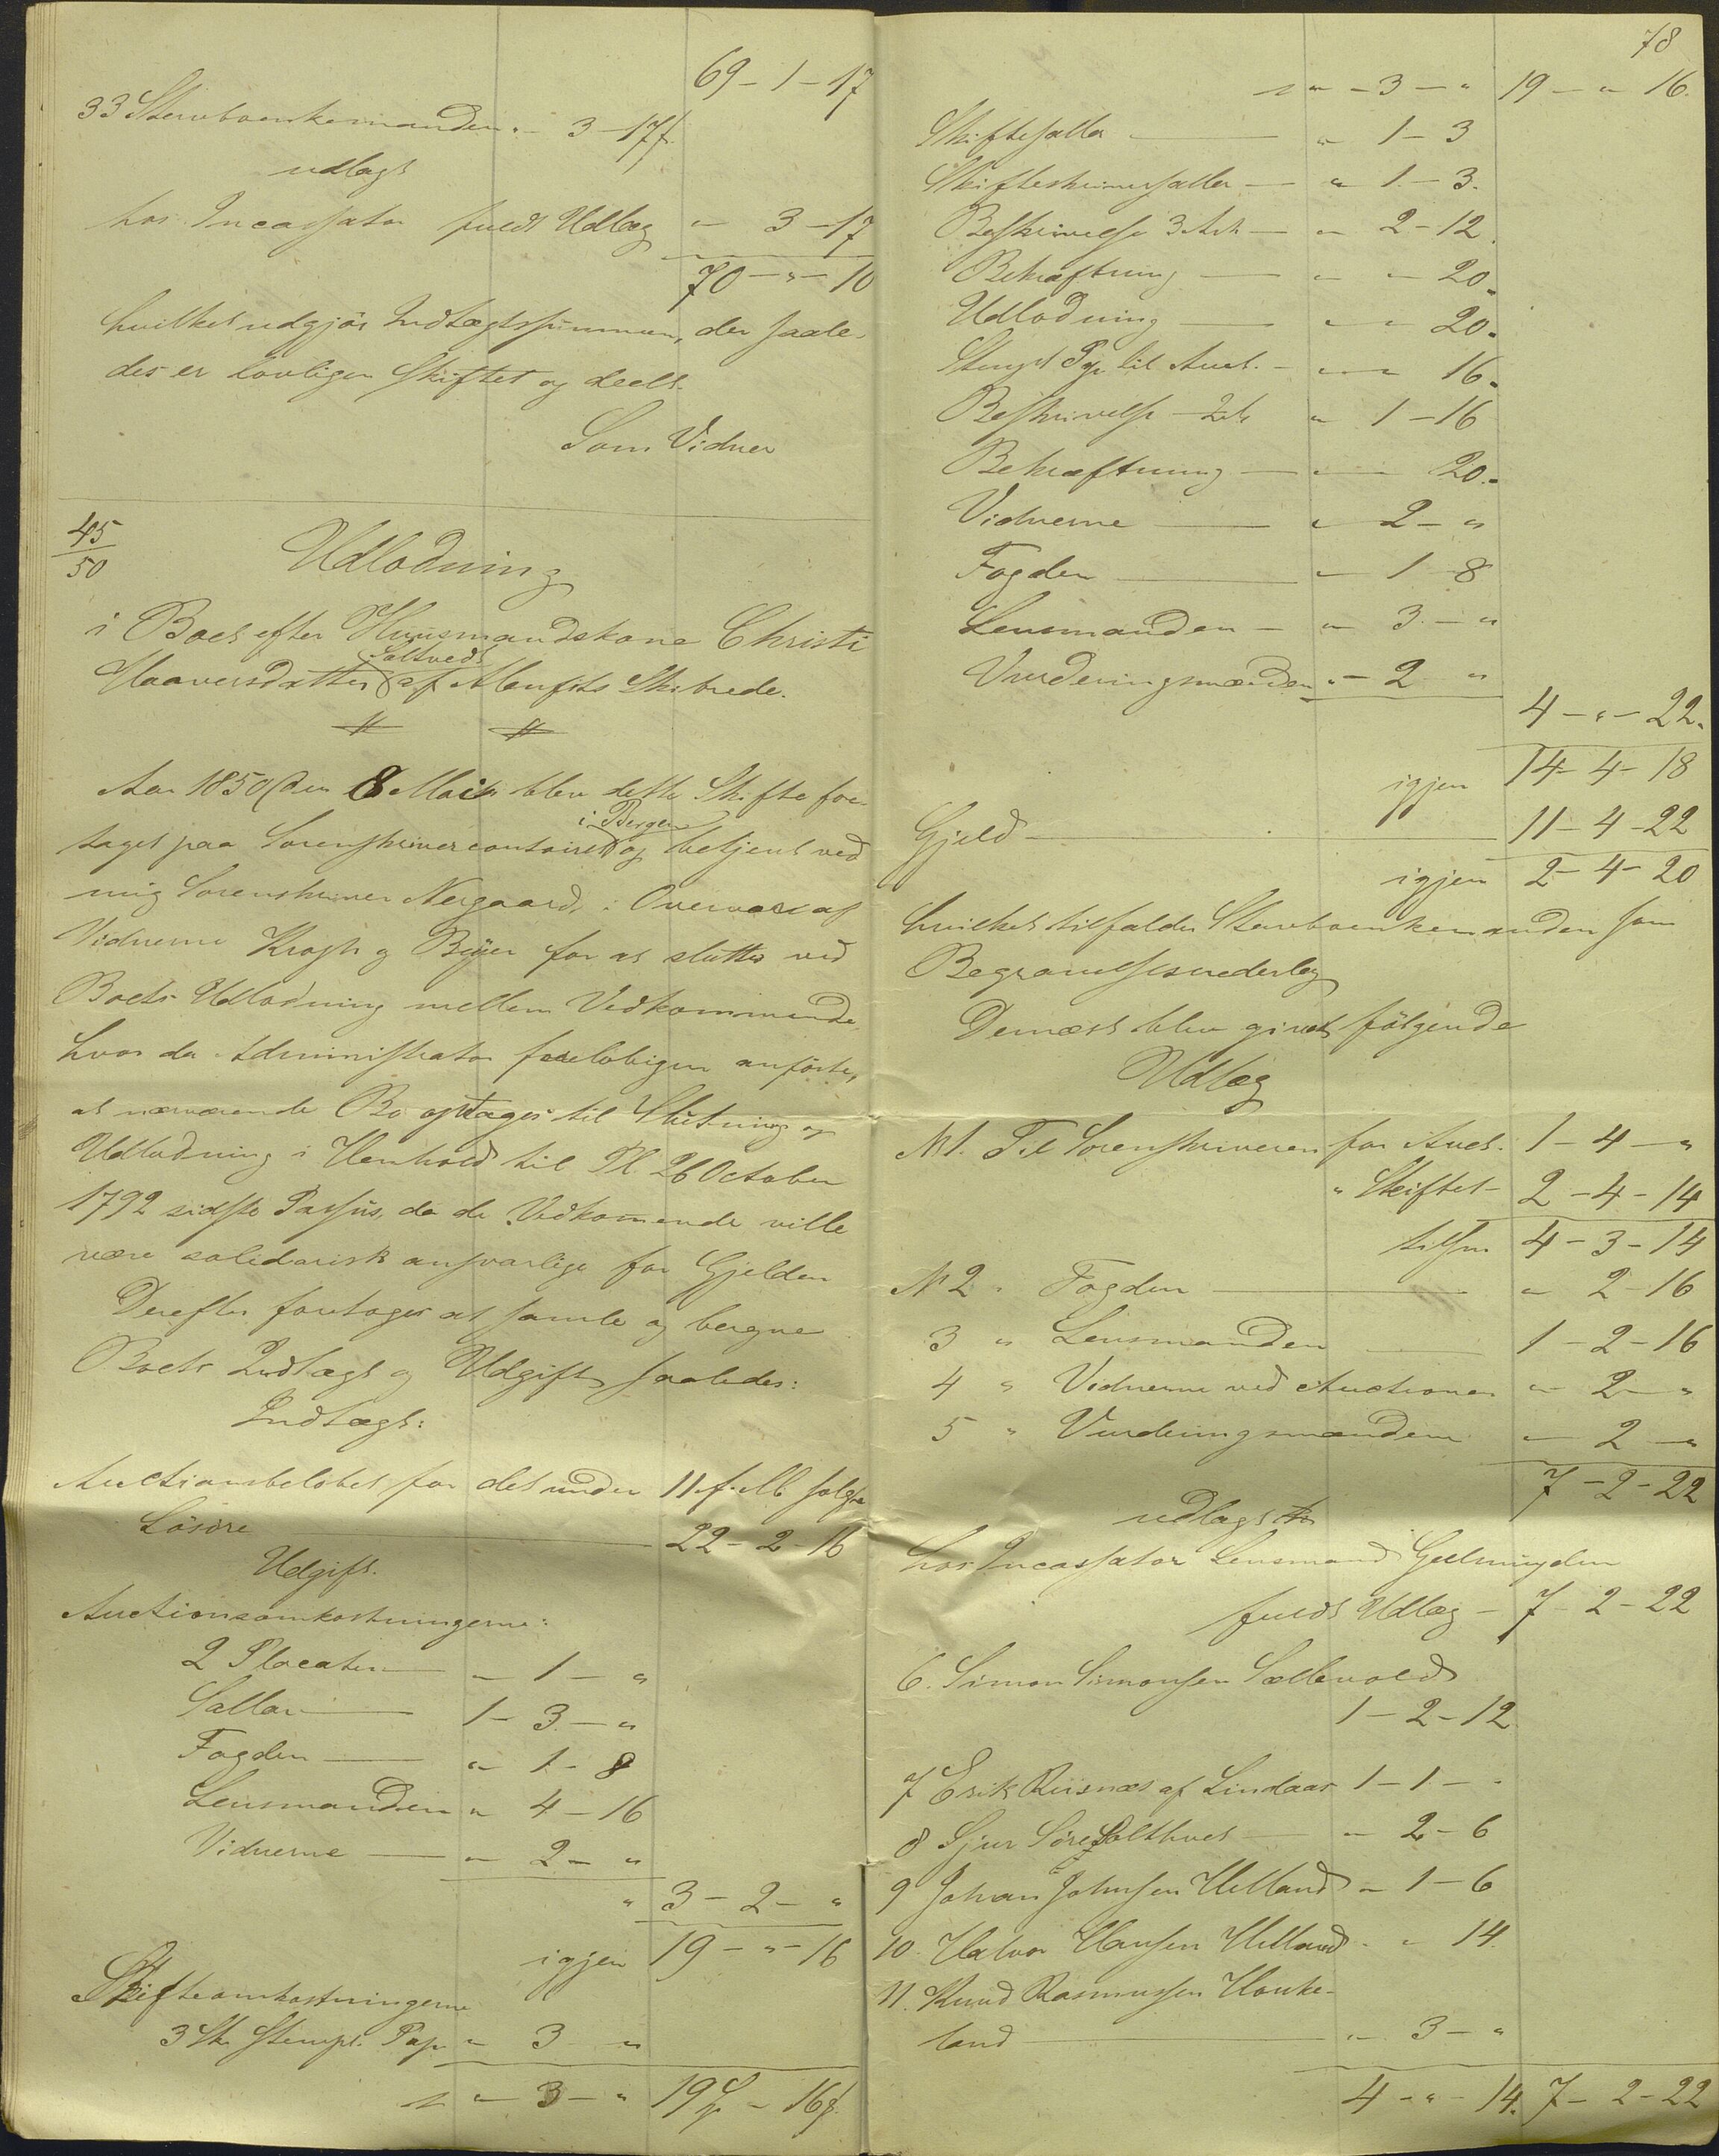 69 - 1 - 17
33 Stervboenkemanden " - 3 - 17 f.
udlagt
hos Incassator fuldt Udlæg " - 3 - 17
70 - " - 10
hvilket udgjør Indtægtssummen, der saale-
des er lovligen skiftet og deelt.
Som Vidner
45
50
Udlodning
i Boet efter Huusmandskone Christi
Haaversdatter Saltvedt af Alenfits Skibrede.
Aar 1850 den 8 Mai blev dette Skifte fore-
taget paa Sorenskrivercontoiret i Bergen og betjent ved
mig Sorenskriver Nergaard, i Overvær af
Vidnerne Krogh og Beyer for at slutte ved
Boets Udlodning mellem Vedkommende,
hvor da Administrator foreløbigen anførte,
at nærværende Bo optages til Slutning og
Udlodning i Henhold til Pl 26 October
1792 sidste Passus, da de Vedkommende ville
være solidarisk ansvarlige for Gjelden
Derefter foretoges at samle og beregne
Boets Indtægt og Udgift saaledes:
Indtægt:
Auctionsbeløbet for det under 11 f. M. solgte
Løsøre 22 - 2 - 16
Udgift.
Auctionsomkostningerne:
2 Placater " - 1 - "
Sallar 1 - 3 - "
Fogden " - 1 - 8
Lensmanden " 4 - 16
Vidnerne " - 2 - "
" 3 - 2 - "
igjen 19 - " - 16
Skifteomkostningerne
3 Stk Stempl. Pap. " 3 "
" - 3 - " 19 - 16
78
" - 3 - " 19 - " - 16.
Skiftesallar " 1 - 3
Skifteskriversallar " 1 - 3.
Beskrivelse 3 Ark " 2 - 12.
Bekræftning " " 20.
Udlodning " " 20.
Stempl Pap til Auct. " " 16.
Beskrivelse " 1 - 16
Bekræftning " 20.
Vidnerne " 2 - "
Fogden " 1 - 8
Lensmanden " 3 - "
Vurderingsmænden " - 2 "
4 - " - 22.
igjen 14 - 4 - 18
Gjeld 11 - 4 - 22
igjen 2 - 4 - 20
hvilket tilfalder Stervboenkemanden som
Begravelsesvederlag
Dernæst blev givet følgende
Udlæg
N 1. Til Sorenskriveren for Auct. 1 - 4 - "
" Skiftet 2 - 4 - 14
tilsm 4 - 3 - 14
N 2 " Fogden " 2 - 16
3 " Lensmanden 1 - 2 - 16
4 " Vidnerne ved Auctionen " 2 - "
5 " Vurderingsmændene " 2 - "
7 - 2 - 22
udlagt
hos Incassator Lensmand
fuldt Udlæg - 7 - 2 - 22
6. Simon Simonsen Sællevold
1 - 2 - 12.
7 Erik Riisnæs af Lindaas 1 - 1 - "
8 Sjur Søre " 2 - 6
9 Johan Johnsen Helland " 1 - 6
10. Halvor Hansen Helland " " 14.
11. Knud Rasmussen Houke-
land " 3 - "
4 - " - 14. 7 - 2 - 22